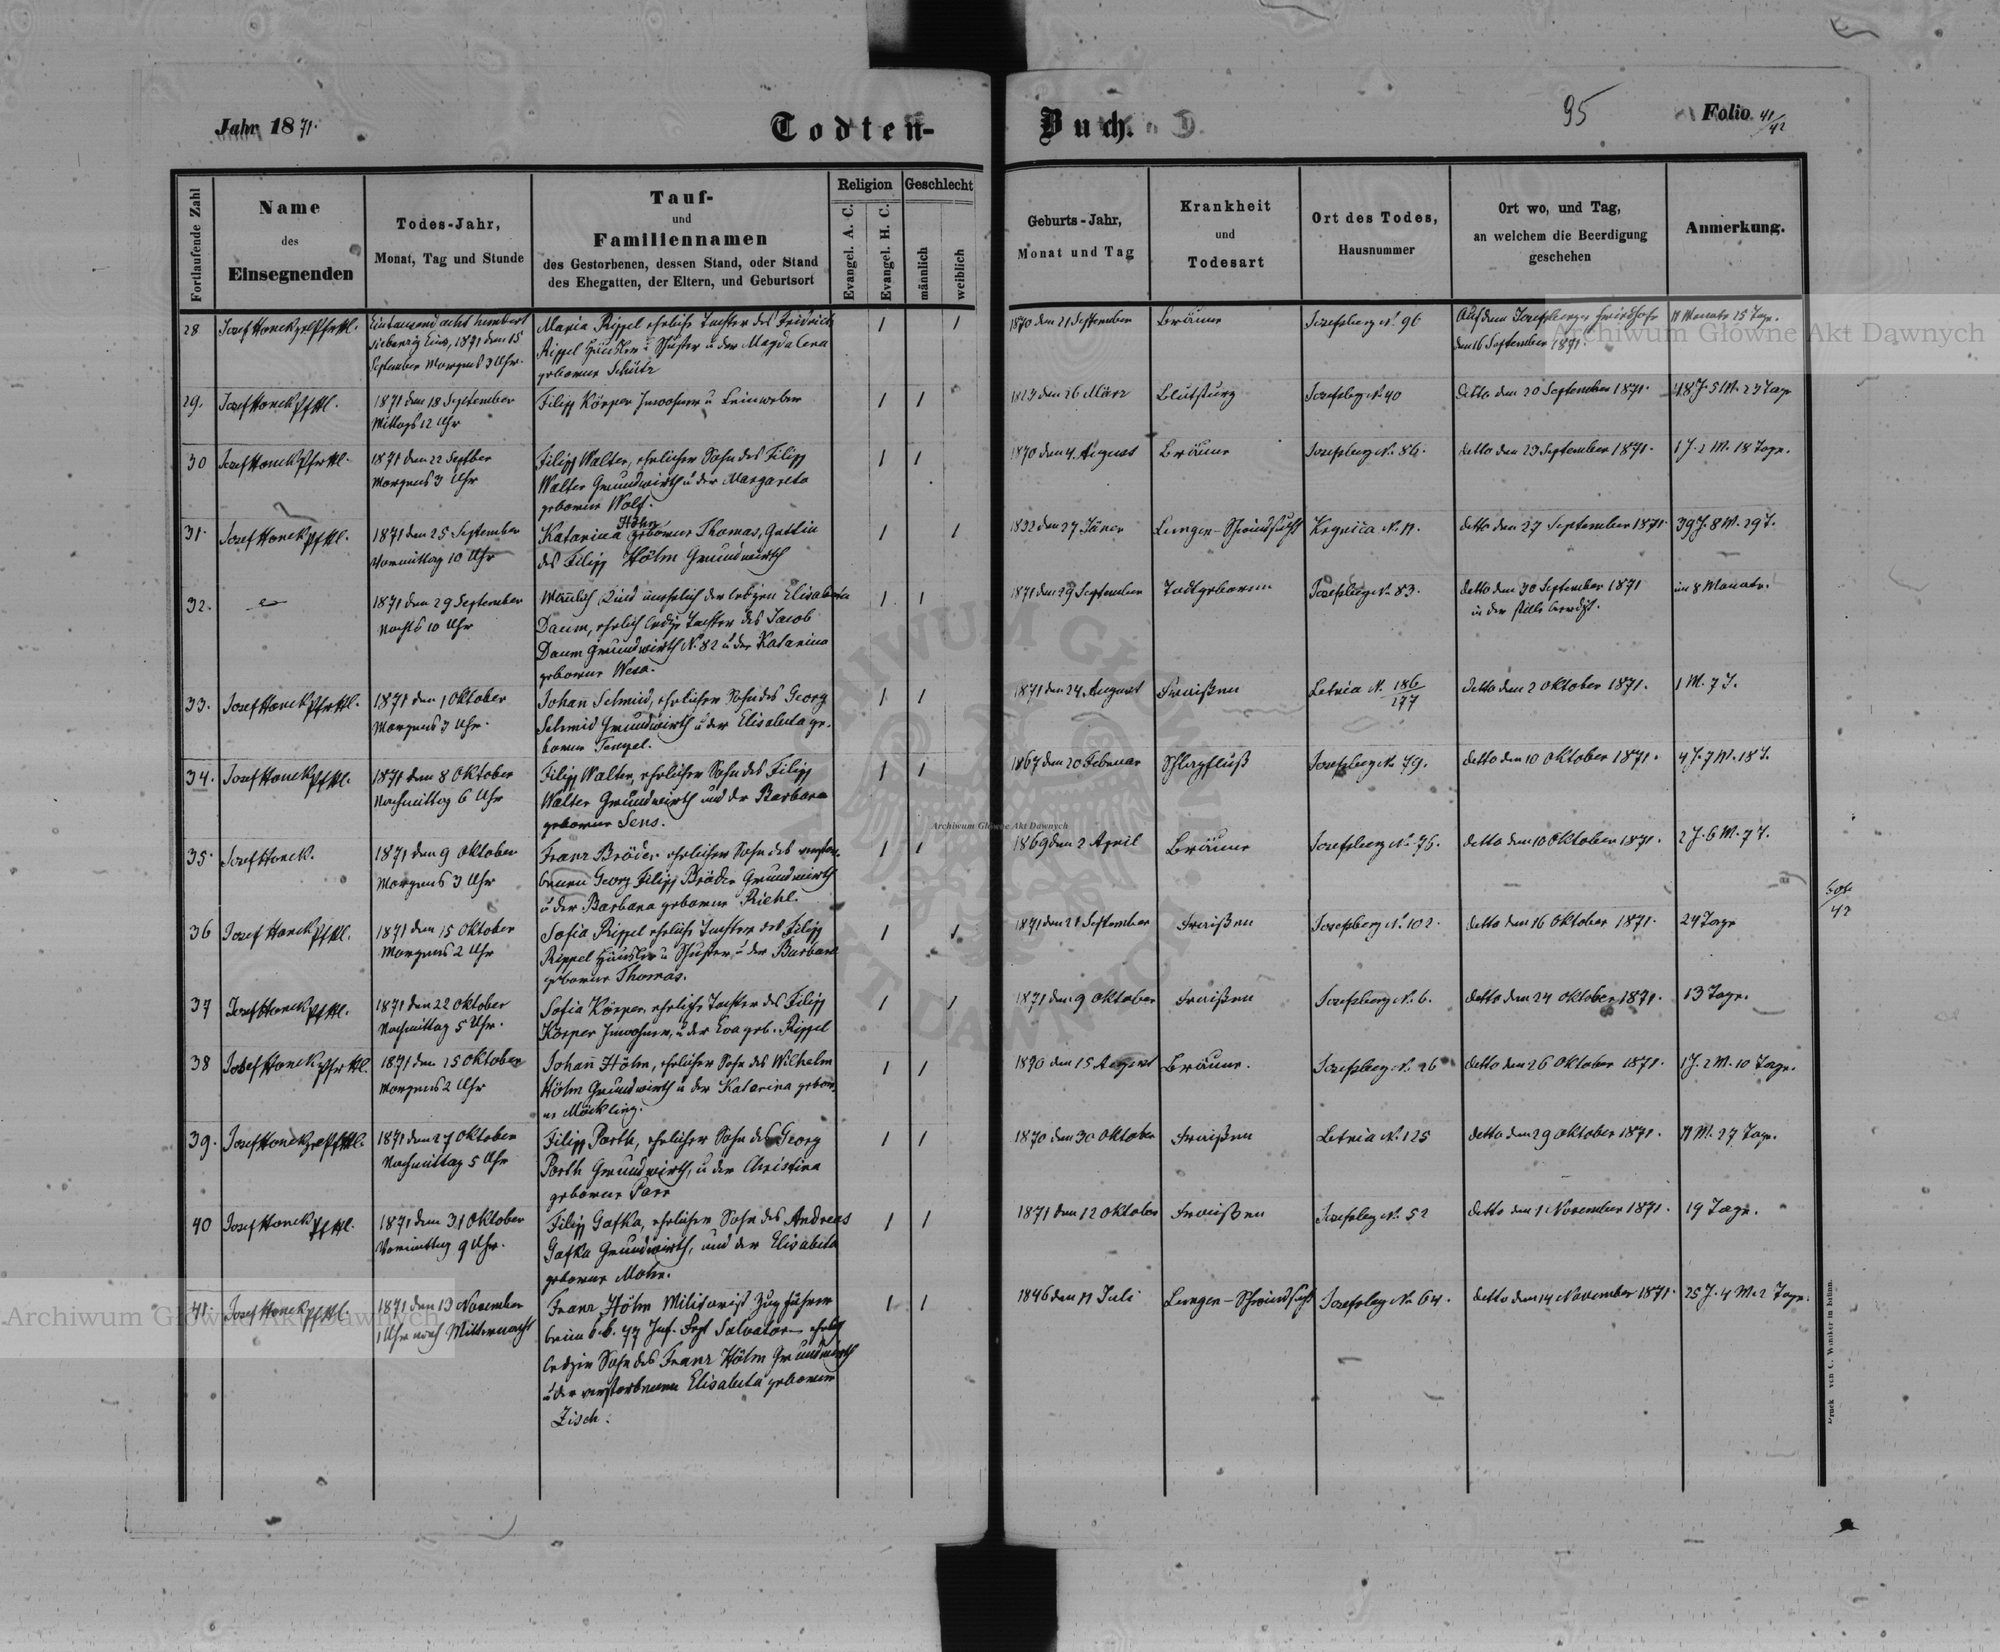 Jahr 1871.
Todten-
Buch.
95
Folio 41/42
Fortlaufende Zahl
Name
des
Einsegnenden
Todes-Jahr,
Monat, Tag und Stunde
Tauf-
und
Familiennamen
des Gestorbenen, dessen Stand, oder Stand
des Ehegatten, der Eltern, und Geburtsort
Religion
Evangel. A. C.
Evangel. H. C.
Geschlecht
männlich
weiblich
Geburts-Jahr,
Monat und Tag
Krankheit
und
Todesart
Ort des Todes,
Hausnummer
Ort wo, und Tag,
an welchem die Beerdigung
geschehen
Anmerkung.
28
Josef Honck
Eintausend acht hundert
siebenzig Eins, 1871 den 15
September Morgens 3 Uhr.
Maria Rippel eheliche Tochter des Fridrich
Rippel Häusler u Schuster u der Magdalena
geborene Schütz
1870 den 21 September
Bräune
Josefsberg No 96
Auf dem Josefsberger Friedhofe
den 16 September 1871.
11 Monate 25 Tage.
29.
Josef Honck
1871 den 18 September
Mittags 12 Uhr
Filipp Körper Inwohner u Leinweber
1823 den 26 März
Blutsturz
Josefsbg No 40
Detto den 20 September 1871.
48 J. 5 M. 23 Tage
30
Josef Honck
1871 den 22 Septber
Morgens 3 Uhr
Filipp Walter, ehelicher Sohn des Filipp
Walter Grundwirth u der Margareta
geborene Wolf.
1870 den 4. August
Bräune
Josefsberg No 86.
detto den 23 September 1871.
1 J. 2 M. 18 Tage.
31.
Josef Honck
1871 den 25 September
Vormittag 10 Uhr
Höhn
Katarina geborene Thomas, Gattin
des Filipp Höhn Grundwirth
1832 den 27 Jäner
Lungen-Schwindsucht
Kygnica No 11.
detto den 27 September 1871
39 J. 8 M. 29 T.
32.
1871 den 29 September
Nachts 10 Uhr
Männlich Kind unehelich der ledigen Elisabeta
Daum, ehelich ledige Tochter des Jacob
Daum Grundwirth No 82 u der Katarina
geborene Wera.
1871 den 29 September
Todtgeboren
Josefsberg No 83.
detto den 30 September 1871
in der stille beerdigt.
im 8 Monate.
33.
Josef Honck
1871 den 1 Oktober
Morgens 3 Uhr.
Johann Schmid, ehelicher Sohn des Georg
Schmid Grundwirth u der Elisabeta ge-
borene Tenzel.
1871 den 24 August
Fraißen
Letnia No 186/277
Detto den 2 Oktober 1871.
1 M. 7 T.
34.
Josef Honck
1871 den 8 Oktober
Nachmittag 6 Uhr
Filipp Walter, ehelicher Sohn des Filipp
Walter Grundwirth und der Barbara
geborene Sens.
1867 den 20 Februar
Schlagfluß
Josefsberg No 79.
detto den 10 Oktober 1871.
4 J. 7 M. 18 T.
35.
Josef Honck.
1871 den 9 Oktober
Morgens 3 Uhr
Franz Bröder ehelicher Sohn des verstor-
benen Georg Filipp Bröder Grundwirth
u der Barbara geborene Riehl.
1869 den 2 April
Bräune
Josefsberg No 76.
detto den 10 Oktober 1871.
2 J. 6 M. 7 T.
36
Josef Honck
1871 den 15 Oktober
Morgens 2 Uhr
Sofia Rippel eheliche Tochter des Filipp
Rippel Häusler u Schuster, u der Barbara
geborene Thomas.
1871 den 21 September
Fraißen
Josefsberg No 102.
detto den 16 Oktober 1871.
24 Tage
37
Josef Honck
1871 den 22 Oktober
Nachmittag 5 Uhr.
Sofia Körper, eheliche Tochter des Filipp
Körper Inwohner, u der Eva geb. Rippel
1871 den 9 Oktober
Fraißen
Josefsberg No 6.
detto den 24 Oktober 1871.
13 Tage.
38
Josef Honck
1871 den 25 Oktober
Morgens 2 Uhr
Johann Höhn, ehelicher Sohn des Wilhelm
Höhn Grundwirth u der Katarina gebore-
ne Möckling.
1870 den 15 August
Bräune.
Josefsberg No 26
detto den 26 Oktober 1871.
1 J. 2 M. 10 Tage.
39.
Josef Honck
1871 den 27 Oktober
Nachmittag 5 Uhr
Filipp Porth, ehelicher Sohn des Georg
Porth Grundwirth, u der Christina
geborene Parr
1870 den 30 Oktober
Fraißen
Letnia No 125
detto den 29 Oktober 1871.
11 M. 27 Tage.
40
Josef Honck
1871 den 31 Oktober
Vormittag 9 Uhr.
Filipp Gafka, ehelicher Sohn des Andreas
Gafka Grundwirth, und der Elisabeta
geborene Mohr.
1871 den 12 Oktober
Fraißen
Josefsbg No 52
detto den 1 November 1871.
19 Tage.
41.
Josef Honck
1871 den 13 November
1 Uhr nach Mitternacht
Franz Höhn Militarist Zugsführer
beim k.k. 77 Inf. Rgt Salvator ehelich
lediger Sohn des Franz Höhn Grundwirth
u der verstorbenen Elisabeta geborene
Zisch.
1846 den 11 Juli
Lungen-Schwindsucht
Josefsbg No 64.
detto den 14 November 1871.
25 J. 4 M. 2 Tage.
Archiwum Główne Akt Dawnych
Archiwum Główne Akt Dawnych
Archiwum Główne Akt Dawnych
ARCHIWUM GŁÓWNE
AKT DAWNYCH